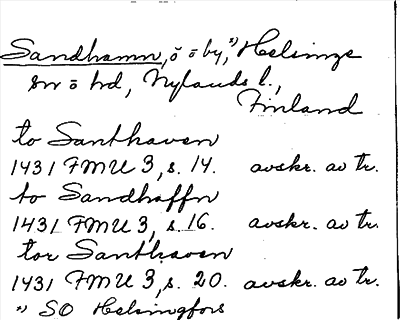 Sandhamn, ö o by, ¹⁾ Helsinge
sn o hd, Nylands l.,
Finland
to Santhaven
1431 FMU 3, s. 14. avskr. av tr.
to Sandhaffn
1431 FMU 3, s. 16. avskr. av tr.
tor Santhaven
1431 FMU 3, s. 20. avskr. av tr.
¹⁾ SO Helsingfors